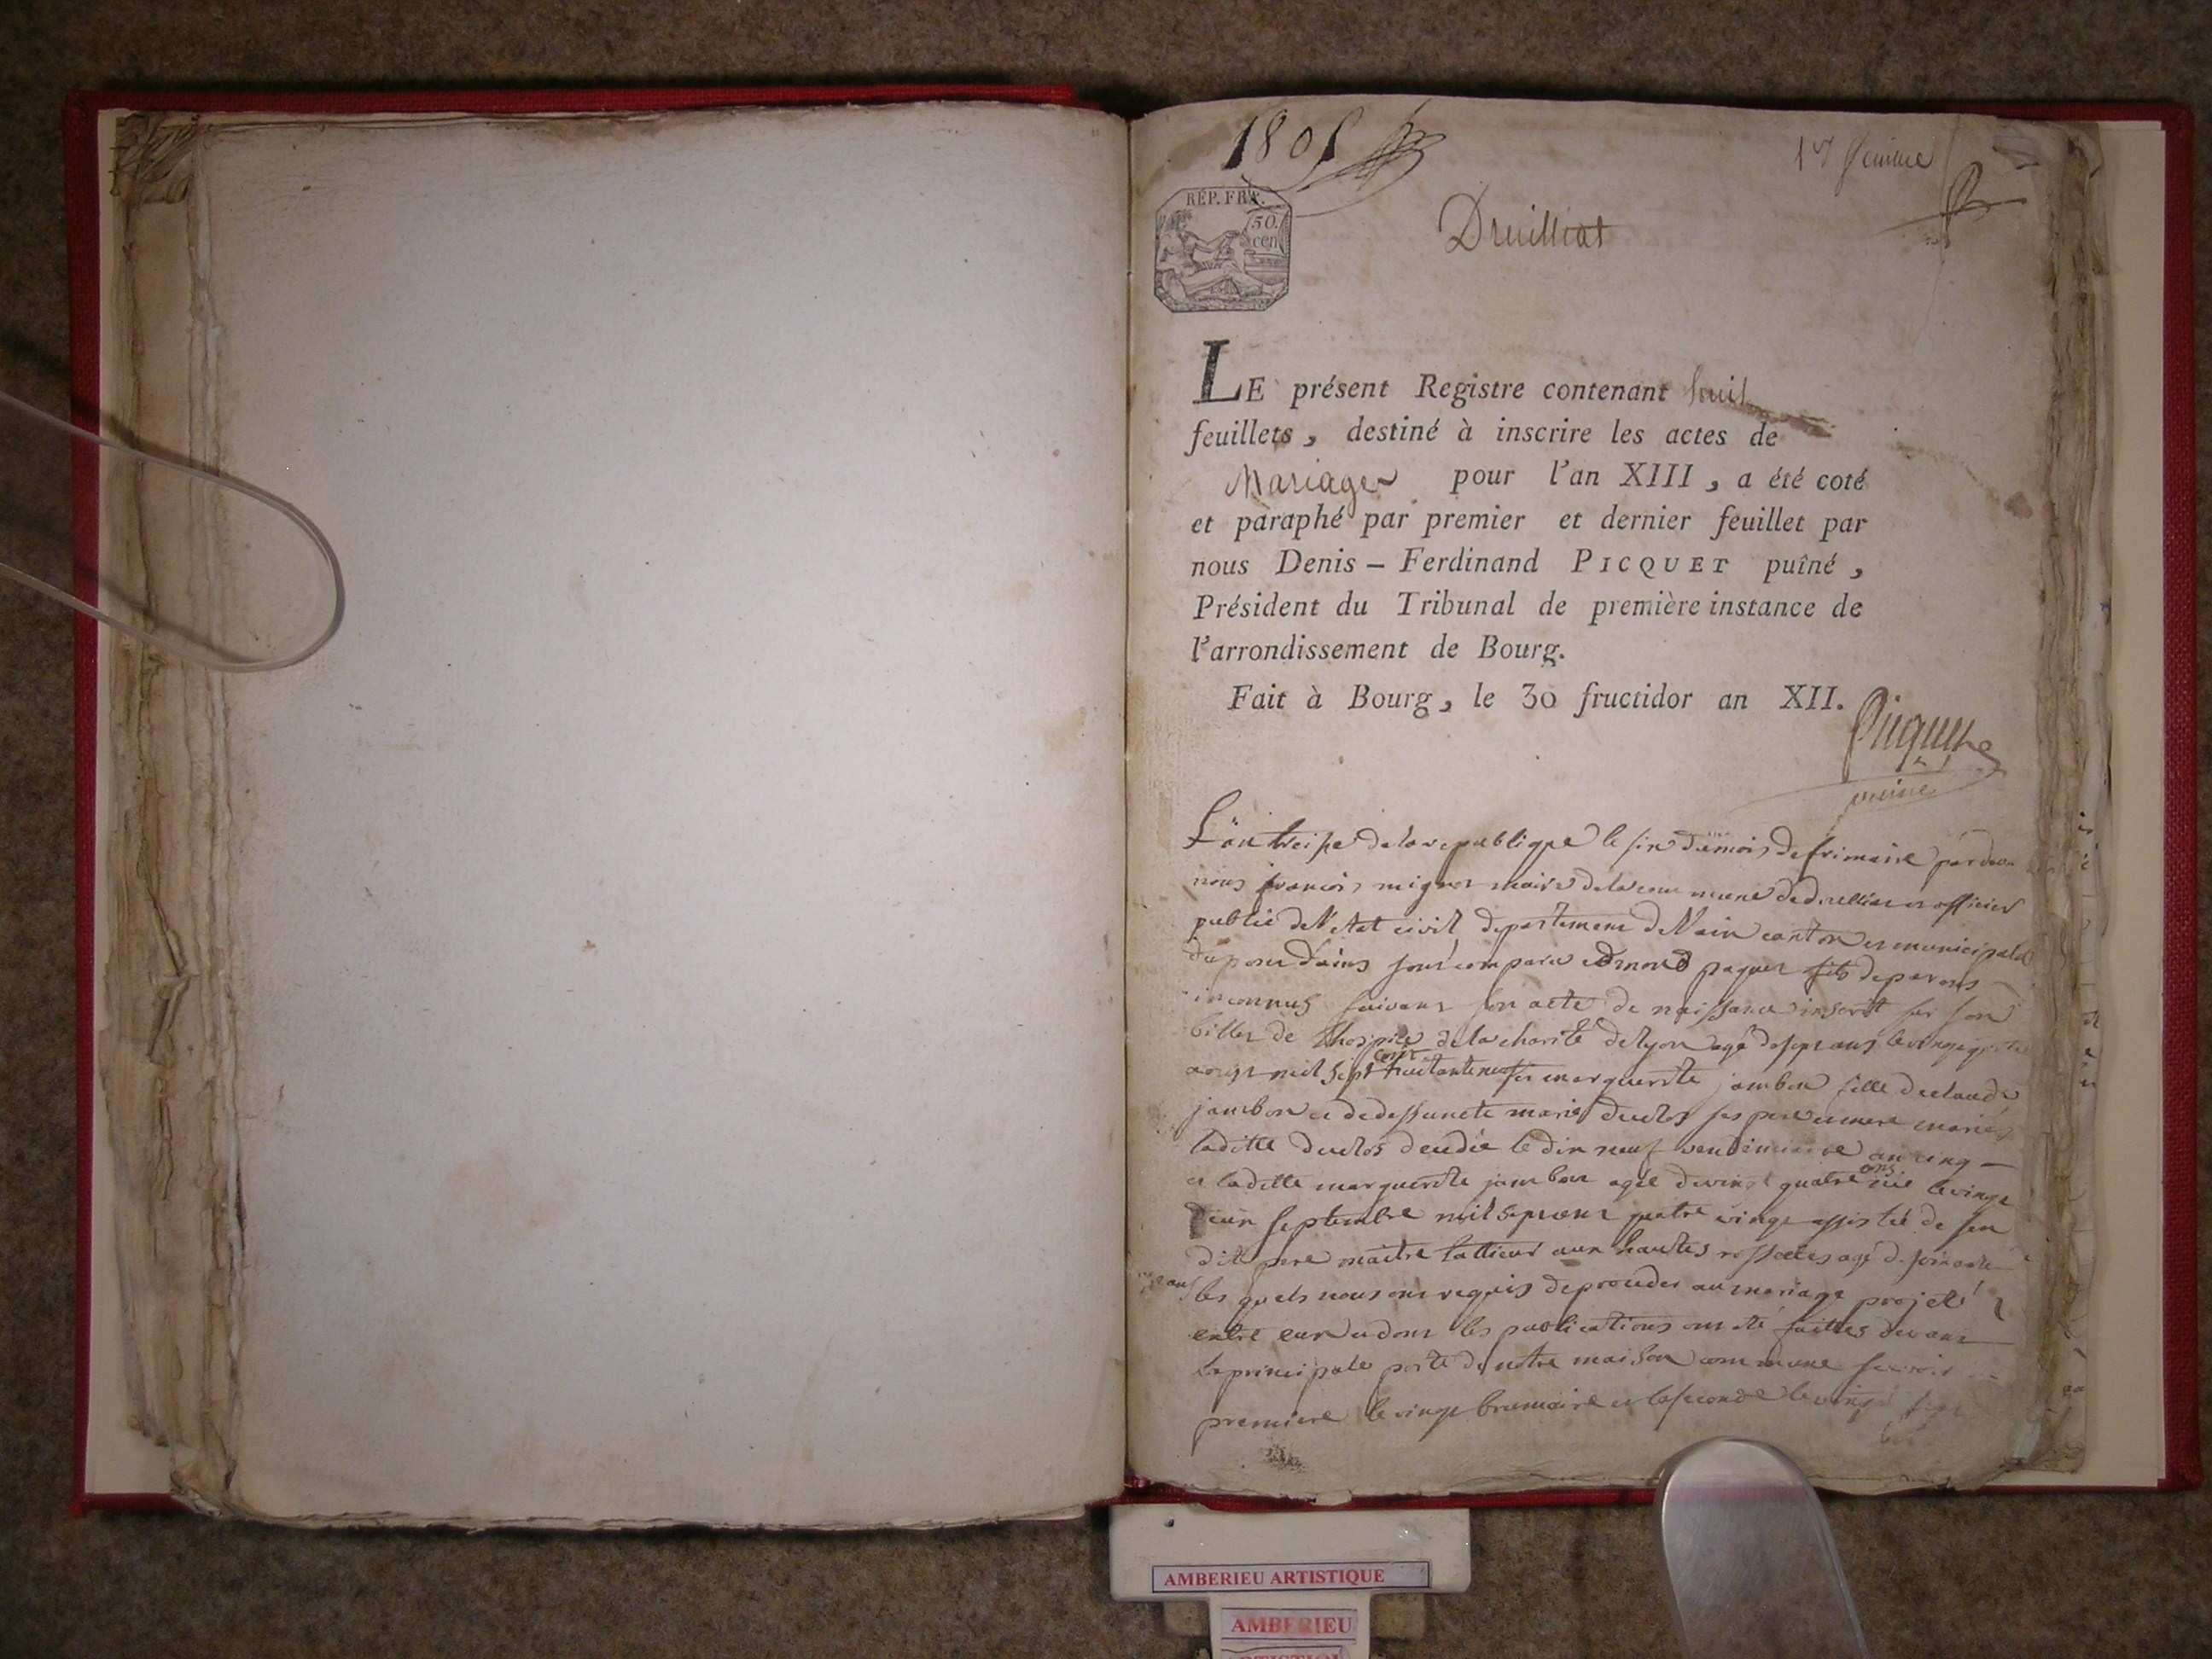 1805
1er feuillet
RÉP. FRA.
50.
cen
Druilliat
LE présent Registre contenant huit
feuillets, destiné à inscrire les actes de
Mariages pour l'an XIII, a été coté
et paraphé par premier et dernier feuillet par
nous Denis – Ferdinand PICQUET puîné,
Président du Tribunal de première instance de
l'arrondissement de Bourg.
Fait à Bourg, le 30 fructidor an XII.
Picquet
puiné
L'an treise de la republique le six du mois de frimaire par devant
nous françois mignot maire de la commune de druilliat officier
public de l'etat civil departement de l'ain canton et municipalité
du pont dains sont comparu paquet fils de parens
inconnus suivant son acte de naissance inscrit sur son
billet de lhospice de la charité de lyon agé de sept ans le vingt
aoust mil sept cent huitante neuf et marguerite jambon fille de claude
jambon et de deffuncte marie duclos ses pere et mere mariés
laditte duclos decedée le dix neuf vendemiaire an cinq
et laditte marguerite jambon agée de vingt quatre ans née le vingt
deux septembre mil sept cent quatre vingt assisté de son
dit pere maitre aux hautes agé de soixante
ans les quels nous ont requis de proceder au mariage projeté
entre eux et dont les publications ont été faittes devant
la principale porte de notre maison commune scavoir
premiere le vingt brumaire et la seconde le vingt sept
AMBERIEU ARTISTIQUE
AMBERIEU